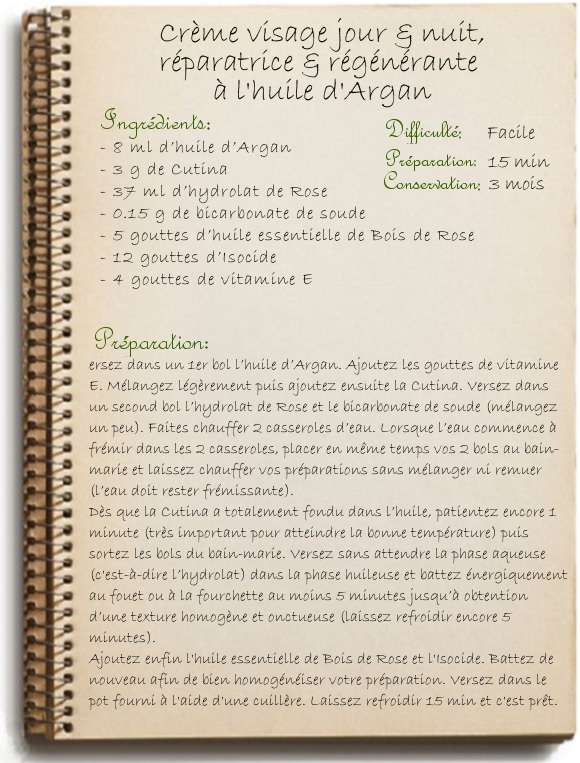 Crème visage jour & nuit,
réparatrice & régénérante
à l'huile d'Argan
Ingrédients:
- 8 ml d'huile d'Argan
- 3 g de Cutina
- 37 ml d'hydrolat de Rose
- 0.15 g de bicarbonate de soude
- 5 gouttes d'huile essentielle de Bois de Rose
- 12 gouttes d'Isocide
- 4 gouttes de vitamine E
Difficulté: Facile
Préparation: 15 min
Conservation: 3 mois
Préparation:
ersez dans un 1er bol l'huile d'Argan. Ajoutez les gouttes de vitamine
E. Mélangez légèrement puis ajoutez ensuite la Cutina. Versez dans
un second bol l'hydrolat de Rose et le bicarbonate de soude (mélangez
un peu). Faites chauffer 2 casseroles d'eau. Lorsque l'eau commence à
frémir dans les 2 casseroles, placer en même temps vos 2 bols au bain-
marie et laissez chauffer vos préparations sans mélanger ni remuer
(l'eau doit rester frémissante).
Dès que la Cutina a totalement fondu dans l'huile, patientez encore 1
minute (très important pour atteindre la bonne température) puis
sortez les bols du bain-marie. Versez sans attendre la phase aqueuse
(c'est-à-dire l'hydrolat) dans la phase huileuse et battez énergiquement
au fouet ou à la fourchette au moins 5 minutes jusqu'à obtention
d'une texture homogène et onctueuse (laissez refroidir encore 5
minutes).
Ajoutez enfin l'huile essentielle de Bois de Rose et l'Isocide. Battez de
nouveau afin de bien homogénéiser votre préparation. Versez dans le
pot fourni à l'aide d'une cuillère. Laissez refroidir 15 min et c'est prêt.